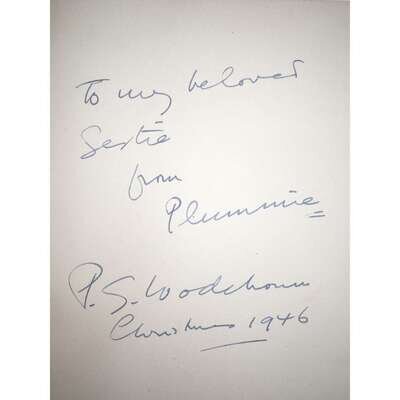 To my beloved
Gertie
from
Plummie
P. G. Wodehouse
Christmas 1946